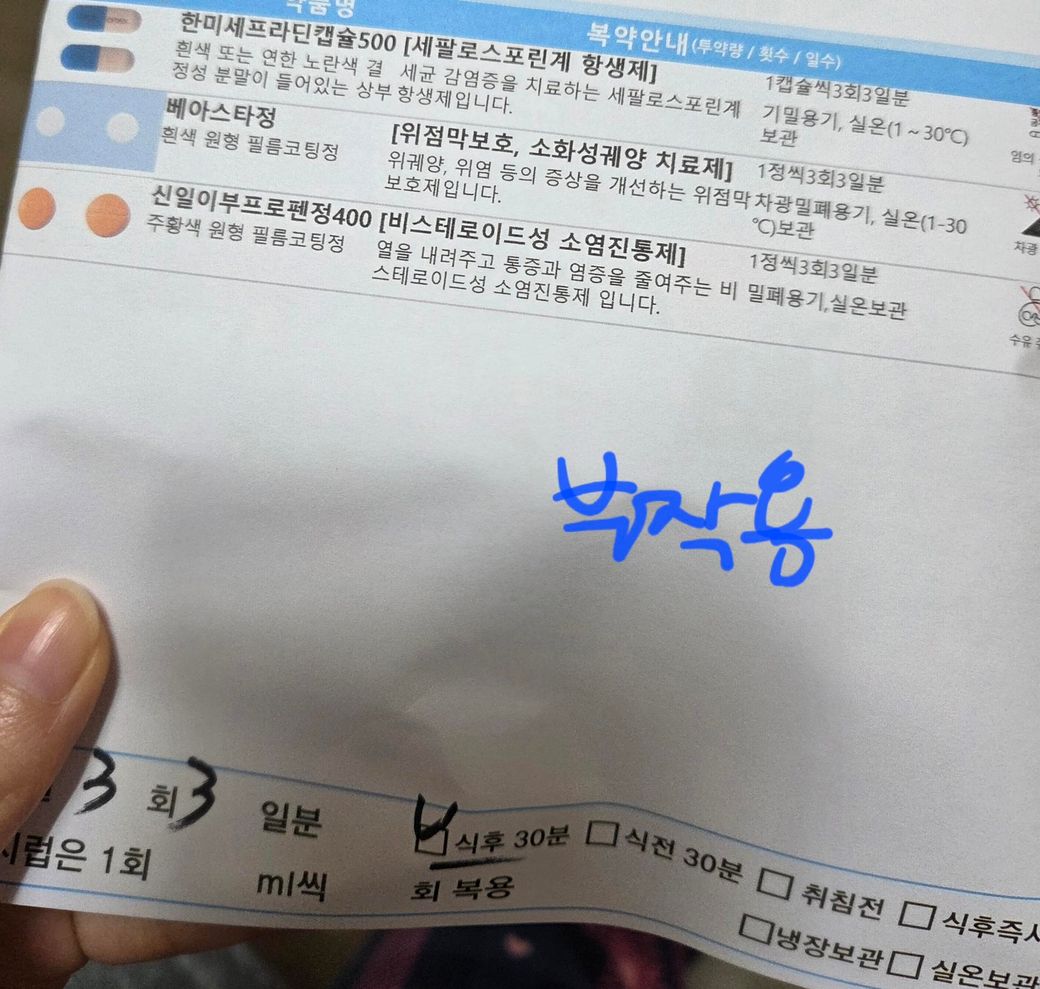 약품명 복약안내(투약량 / 횟수 / 일수)
한미세프라딘캡슐500 [세팔로스포린계 항생제]
흰색 또는 연한 노란색 결 세균 감염증을 치료하는 세팔로스포린계 1캡슐씩3회3일분
정성 분말이 들어있는 상부 항생제입니다. 기밀용기, 실온(1~30℃)
보관
베아스타정 [위점막보호, 소화성궤양 치료제]
흰색 원형 필름코팅정 위궤양, 위염 등의 증상을 개선하는 위점막 1정씩3회3일분
보호제입니다. 차광밀폐용기, 실온(1-30
℃)보관
차광
신일이부프로펜정400 [비스테로이드성 소염진통제]
주황색 원형 필름코팅정 열을 내려주고 통증과 염증을 줄여주는 비 1정씩3회3일분
스테로이드성 소염진통제 입니다. 밀폐용기,실온보관
수유
부작용
3 회 3 일분 식후 30분 식전 30분 취침전 식후즉시
시럽은 1회 ml씩 회 복용 냉장보관 실온보관